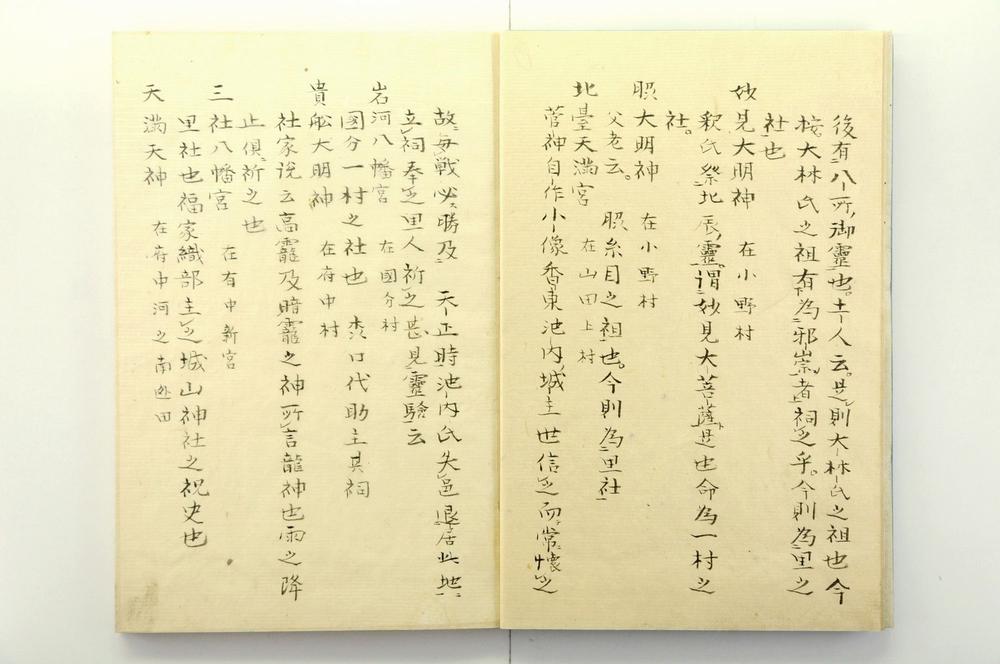 後有八所御靈也土人云是則大林氏之祖也今
按大林氏之祖有為邪崇者祠之乎今則為里之
社也
妙見大明神 在小野村
釈氏祭北辰靈謂妙見大菩薩是也命為一村之
社
照大明神 在小野村
父老云 照糸目之祖也今則為里社
北臺天滿宮 在山田上村
菅神自作小像香東池内城主世信之而常懷之
故每戰必勝及 天正時池内氏失邑退居此地
立祠奉之里人祈之甚見靈驗云
岩河八幡宮 在國分村
國分一村之社也 口代助主其祠
貴舩大明神 在府中村
社家説云高龗及暗龗之神所言龍神也雨之降
止俱祈之也
三社八幡宮 在有中新宮
里社也福家織部主之城山神社之祝史也
天滿天神 在府中河之南田